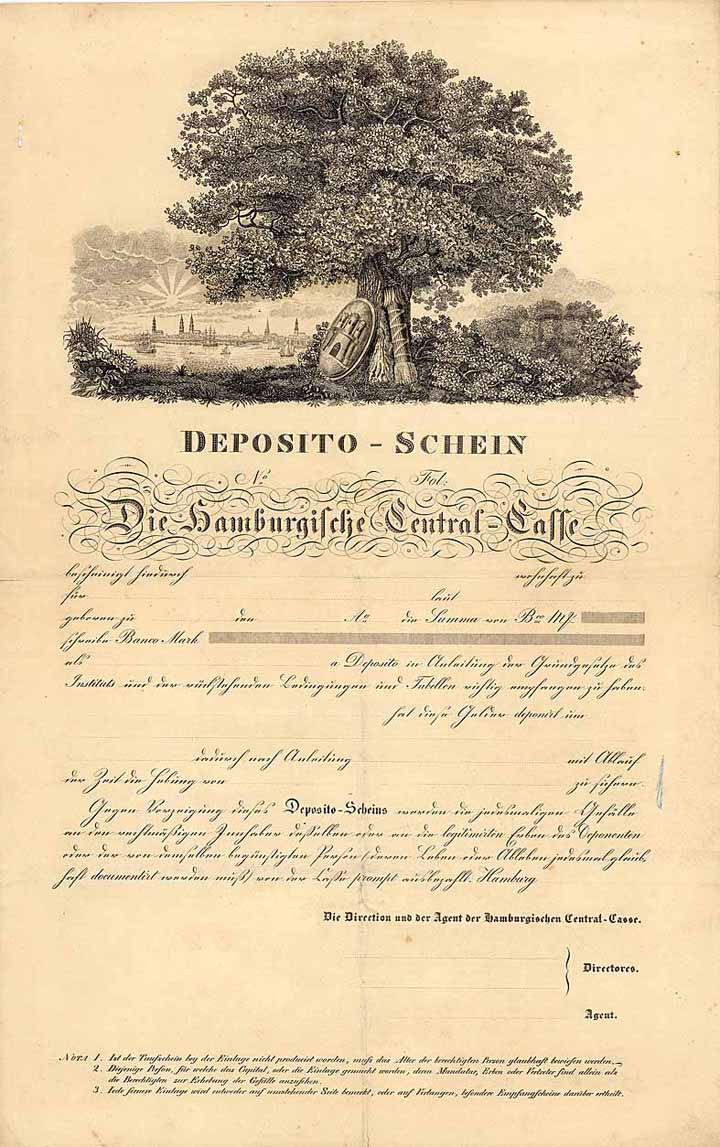 DEPOSITO - SCHEIN
No Fol:
Die Hamburgische Central-Casse
bescheinigt hiedurch wohnhaft zu
für laut
geboren zu den Ao die Summa von Bco Mk
schreibe Banco Mark
als a Deposito in Anleitung der Grundgesetze des
Instituts und der rückstehenden Bedingungen und Tabellen richtig empfangen zu haben.
hat diese Gelder deponirt um
dadurch nach Anleitung mit Ablauf
der Zeit die Hebung von zu sichern.
Gegen Vorzeigung dieses Deposito-Scheins werden die jedesmaligen Gefälle
an den rechtmäßigen Innhaber desselben oder an die legitimirten Erben des Deponenten
oder der von demselben begünstigten Person (deren Leben oder Ableben jedesmal glaub-
haft documentirt werden muß) von der Casse prompt ausbezahlt. Hamburg
Die Direction und der Agent der Hamburgischen Central-Casse.
Directores.
Agent.
NOTA 1. Ist der Taufschein bey der Einlage nicht producirt worden, muß das Alter der berechtigten Person glaubhaft bewiesen werden.
2. Diejenige Person, für welche das Capital, oder die Einlage gemacht worden, deren Mandatar, Erben oder Vertreter sind allein als
die Berechtigten zur Erhebung der Gefälle anzusehen.
3. Jede fernere Einlage wird entweder auf umstehender Seite bemerkt, oder auf Verlangen, besondere Empfangscheine darüber ertheilt.